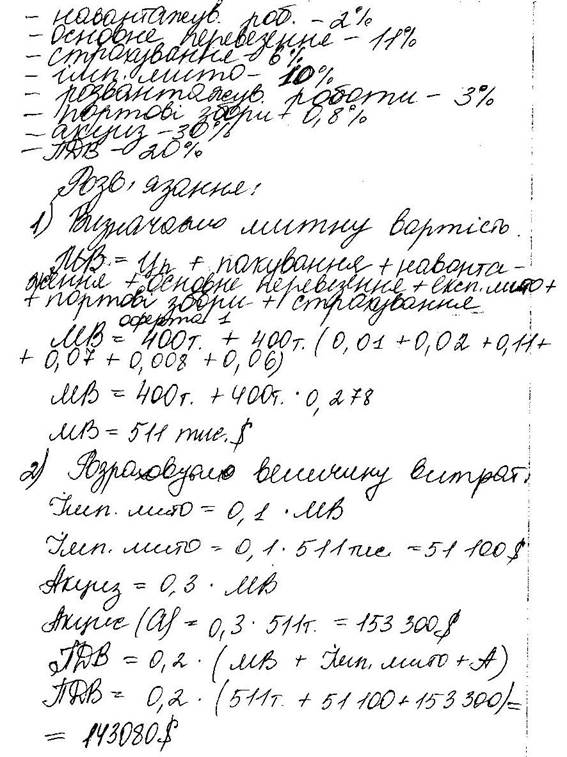 - навантажув. роб. - 2%
- основне перевезення - 11%
- страхування - 6%
- імп. мито - 10%
- розвантажув. роботи - 3%
- портові збори + 0,8%
- акциз - 30%
- ПДВ - 20%
Розв'язання:
1) Визначаємо митну вартість.
МВ = Цп + пакування + наванта-
ження + основне перевезення + експ. мито +
+ портові збори + страхування
оферта 1
МВ = 400т. + 400т. (0,01 + 0,02 + 0,11 +
+ 0,07 + 0,008 + 0,06)
МВ = 400т. + 400т. · 0,278
МВ = 511 тис. $
2) Розраховуємо величину витрат:
Імп. мито = 0,1 · МВ
Імп. мито = 0,1 · 511тис = 51 100$
Акциз = 0,3 · МВ
Акциз (А) = 0,3 · 511т. = 153 300$
ПДВ = 0,2 · (МВ + Імп. мито + А)
ПДВ = 0,2 · (511т. + 51 100 + 153 300) =
= 143080$